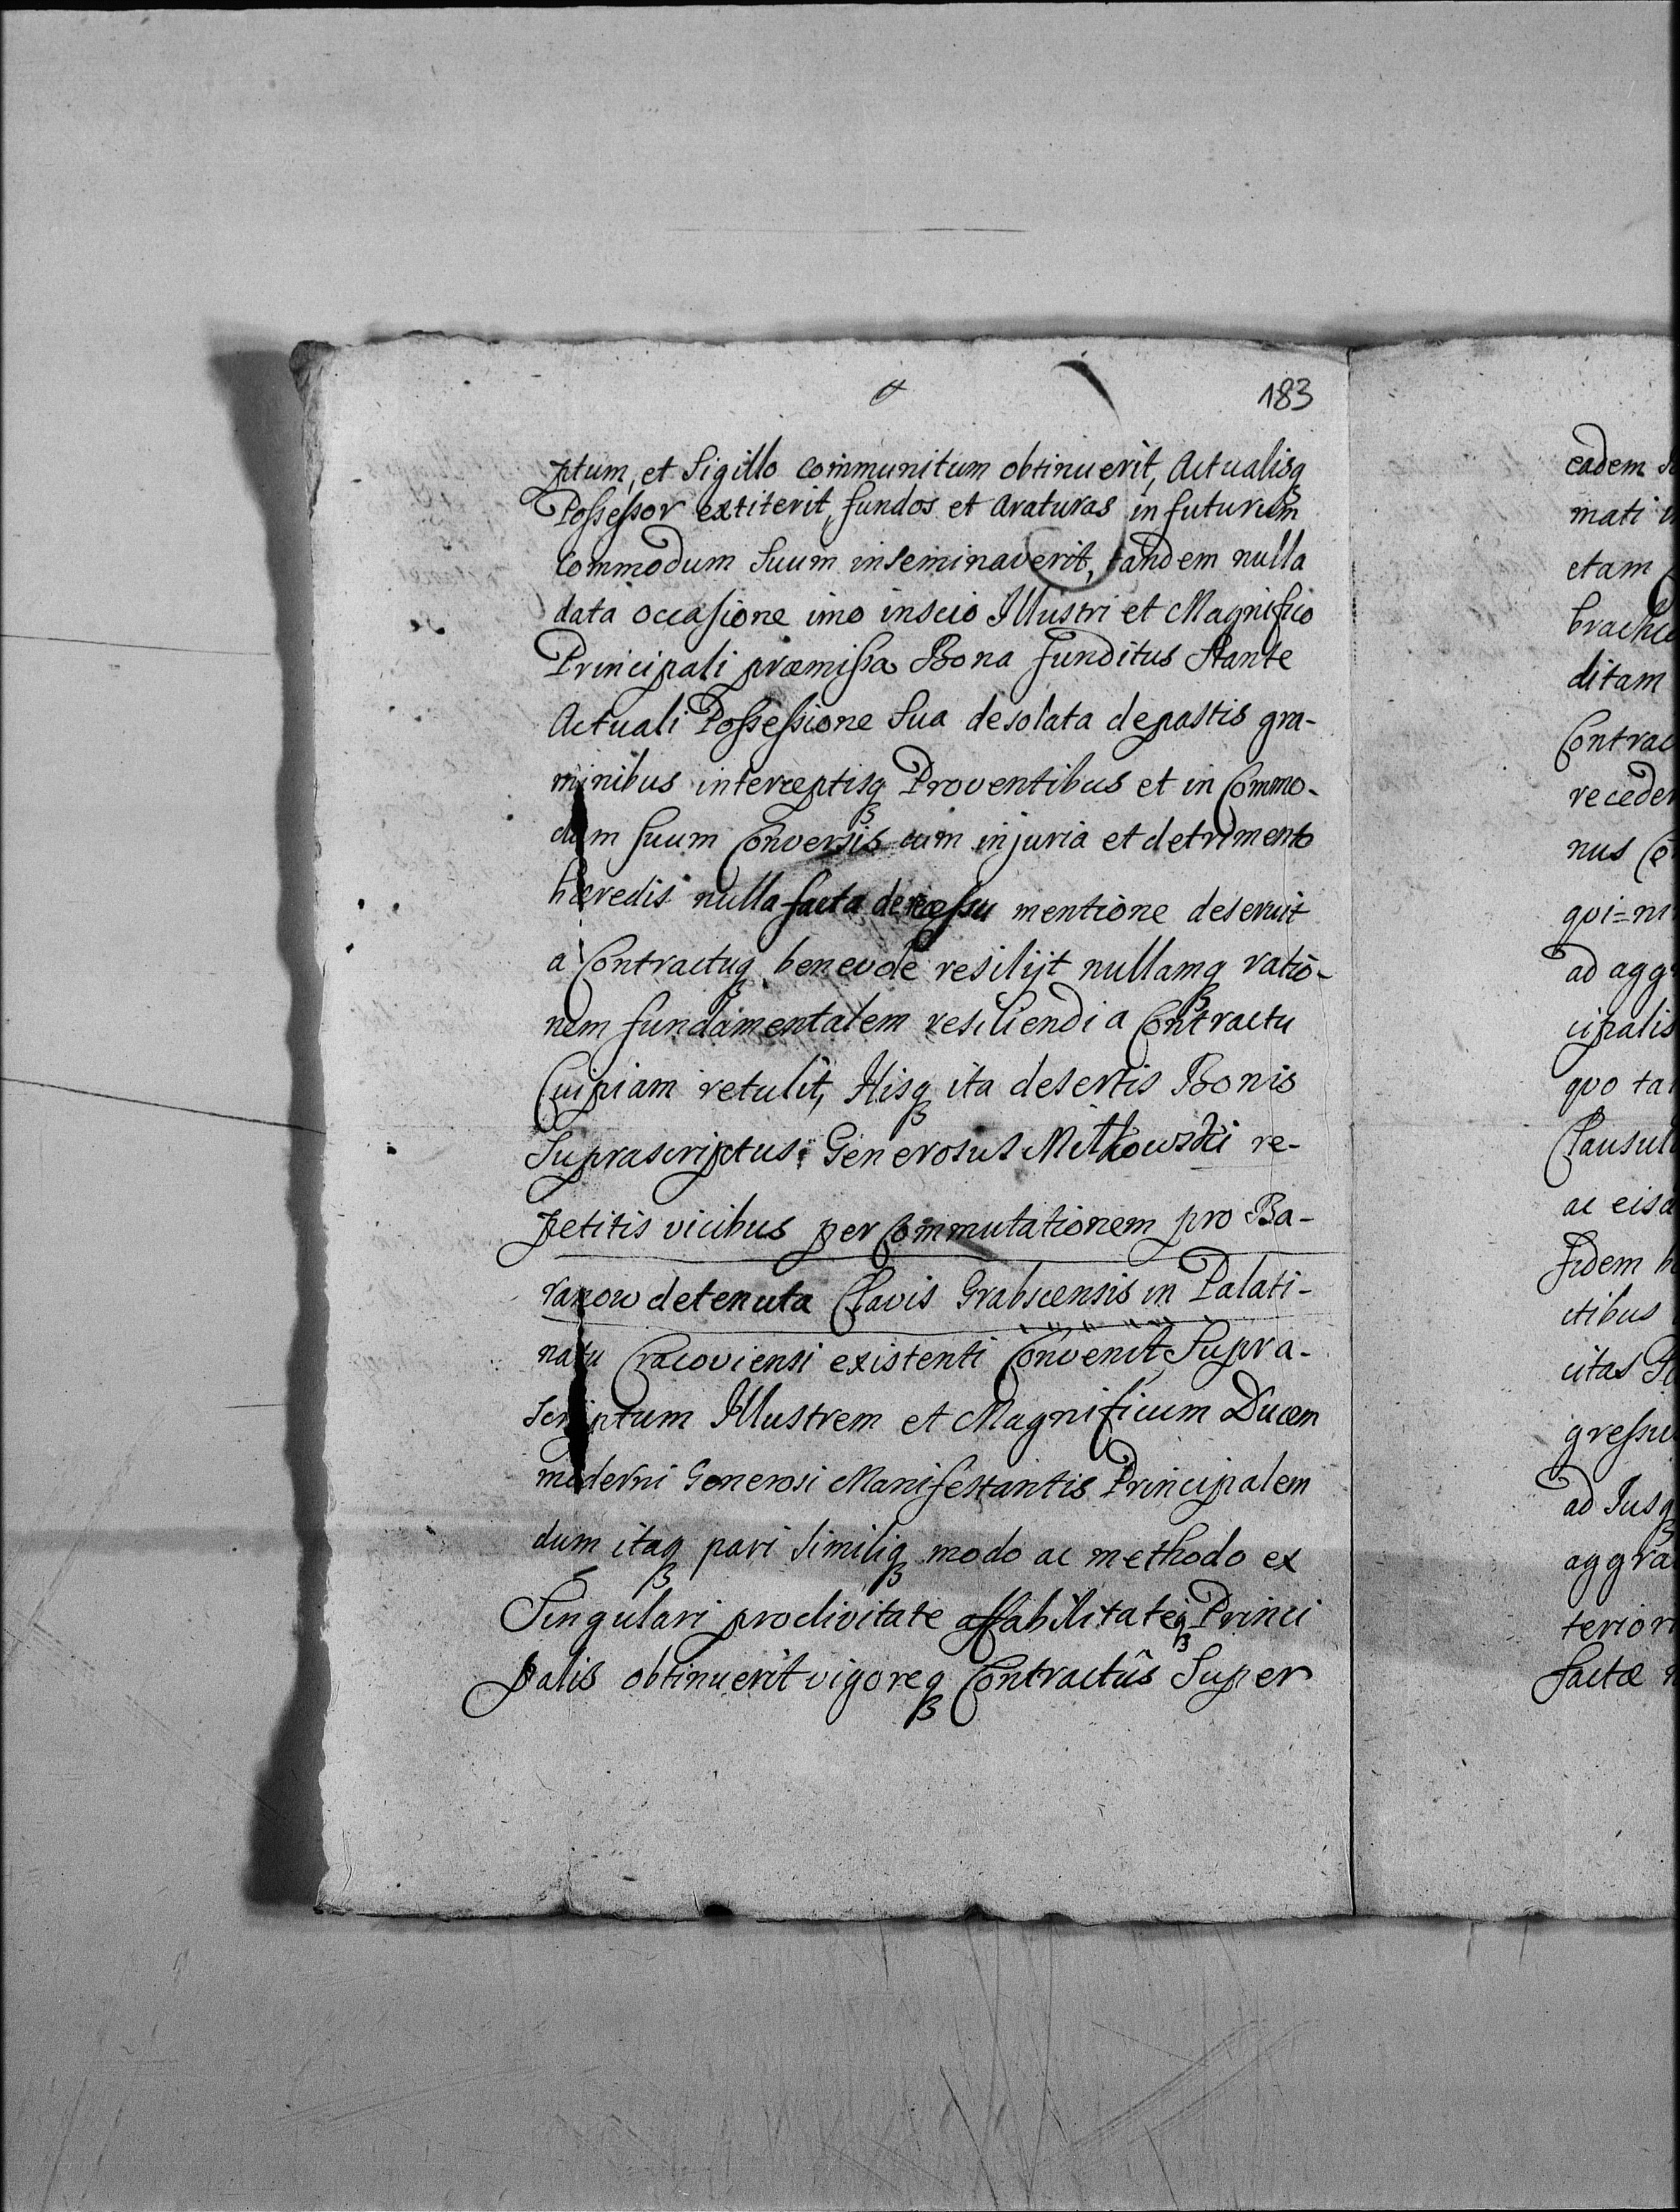 183
ptum, et Sigillo communitum obtinuerit, Actualisq
Possessor extiterit, fundos et Araturas in futurum
Commodum Suum inseminaverit, tandem nulla
data occasione imo inscio Illustri et Magnifico
Principali præmissa Bona funditus Stante
Actuali Possessione Sua desolata depastis gra-
minibus interceptisq Proventibus et in Commo-
dum suum Conversis cum injuria et detrimento
hæredis nulla facta de mentione deseruit
a Contractuq benevole resilijt nullamq ratio-
nem fundamentalem resiliendi a Contractu
Cuipiam retulit, Hisq ita desertis Bonis
Suprascriptus Generosus Mitkowski re-
petitis vicibus per Commutationem pro Ba-
ranow detenuta Clavis Grabscensis in Palati-
natu Cracoviensi existenti Convenit Supra-
scriptum Illustrem et Magnificum Ducem
moderni Generosi Manifestantis Principalem
dum itaq pari Similiq modo ac methodo ex
Singulari proclivitate affabilitateq Princi
palis obtinuerit vigoreq Contractûs Super
eadem
mati
etam
ditam
Contrac
receden
nus
qui=ni
ad agg
cipalis
quo ta
Clausul
ac eisd
fidem
ctibus
citas
gressu
ad Jusq
aggra
terior
factæ